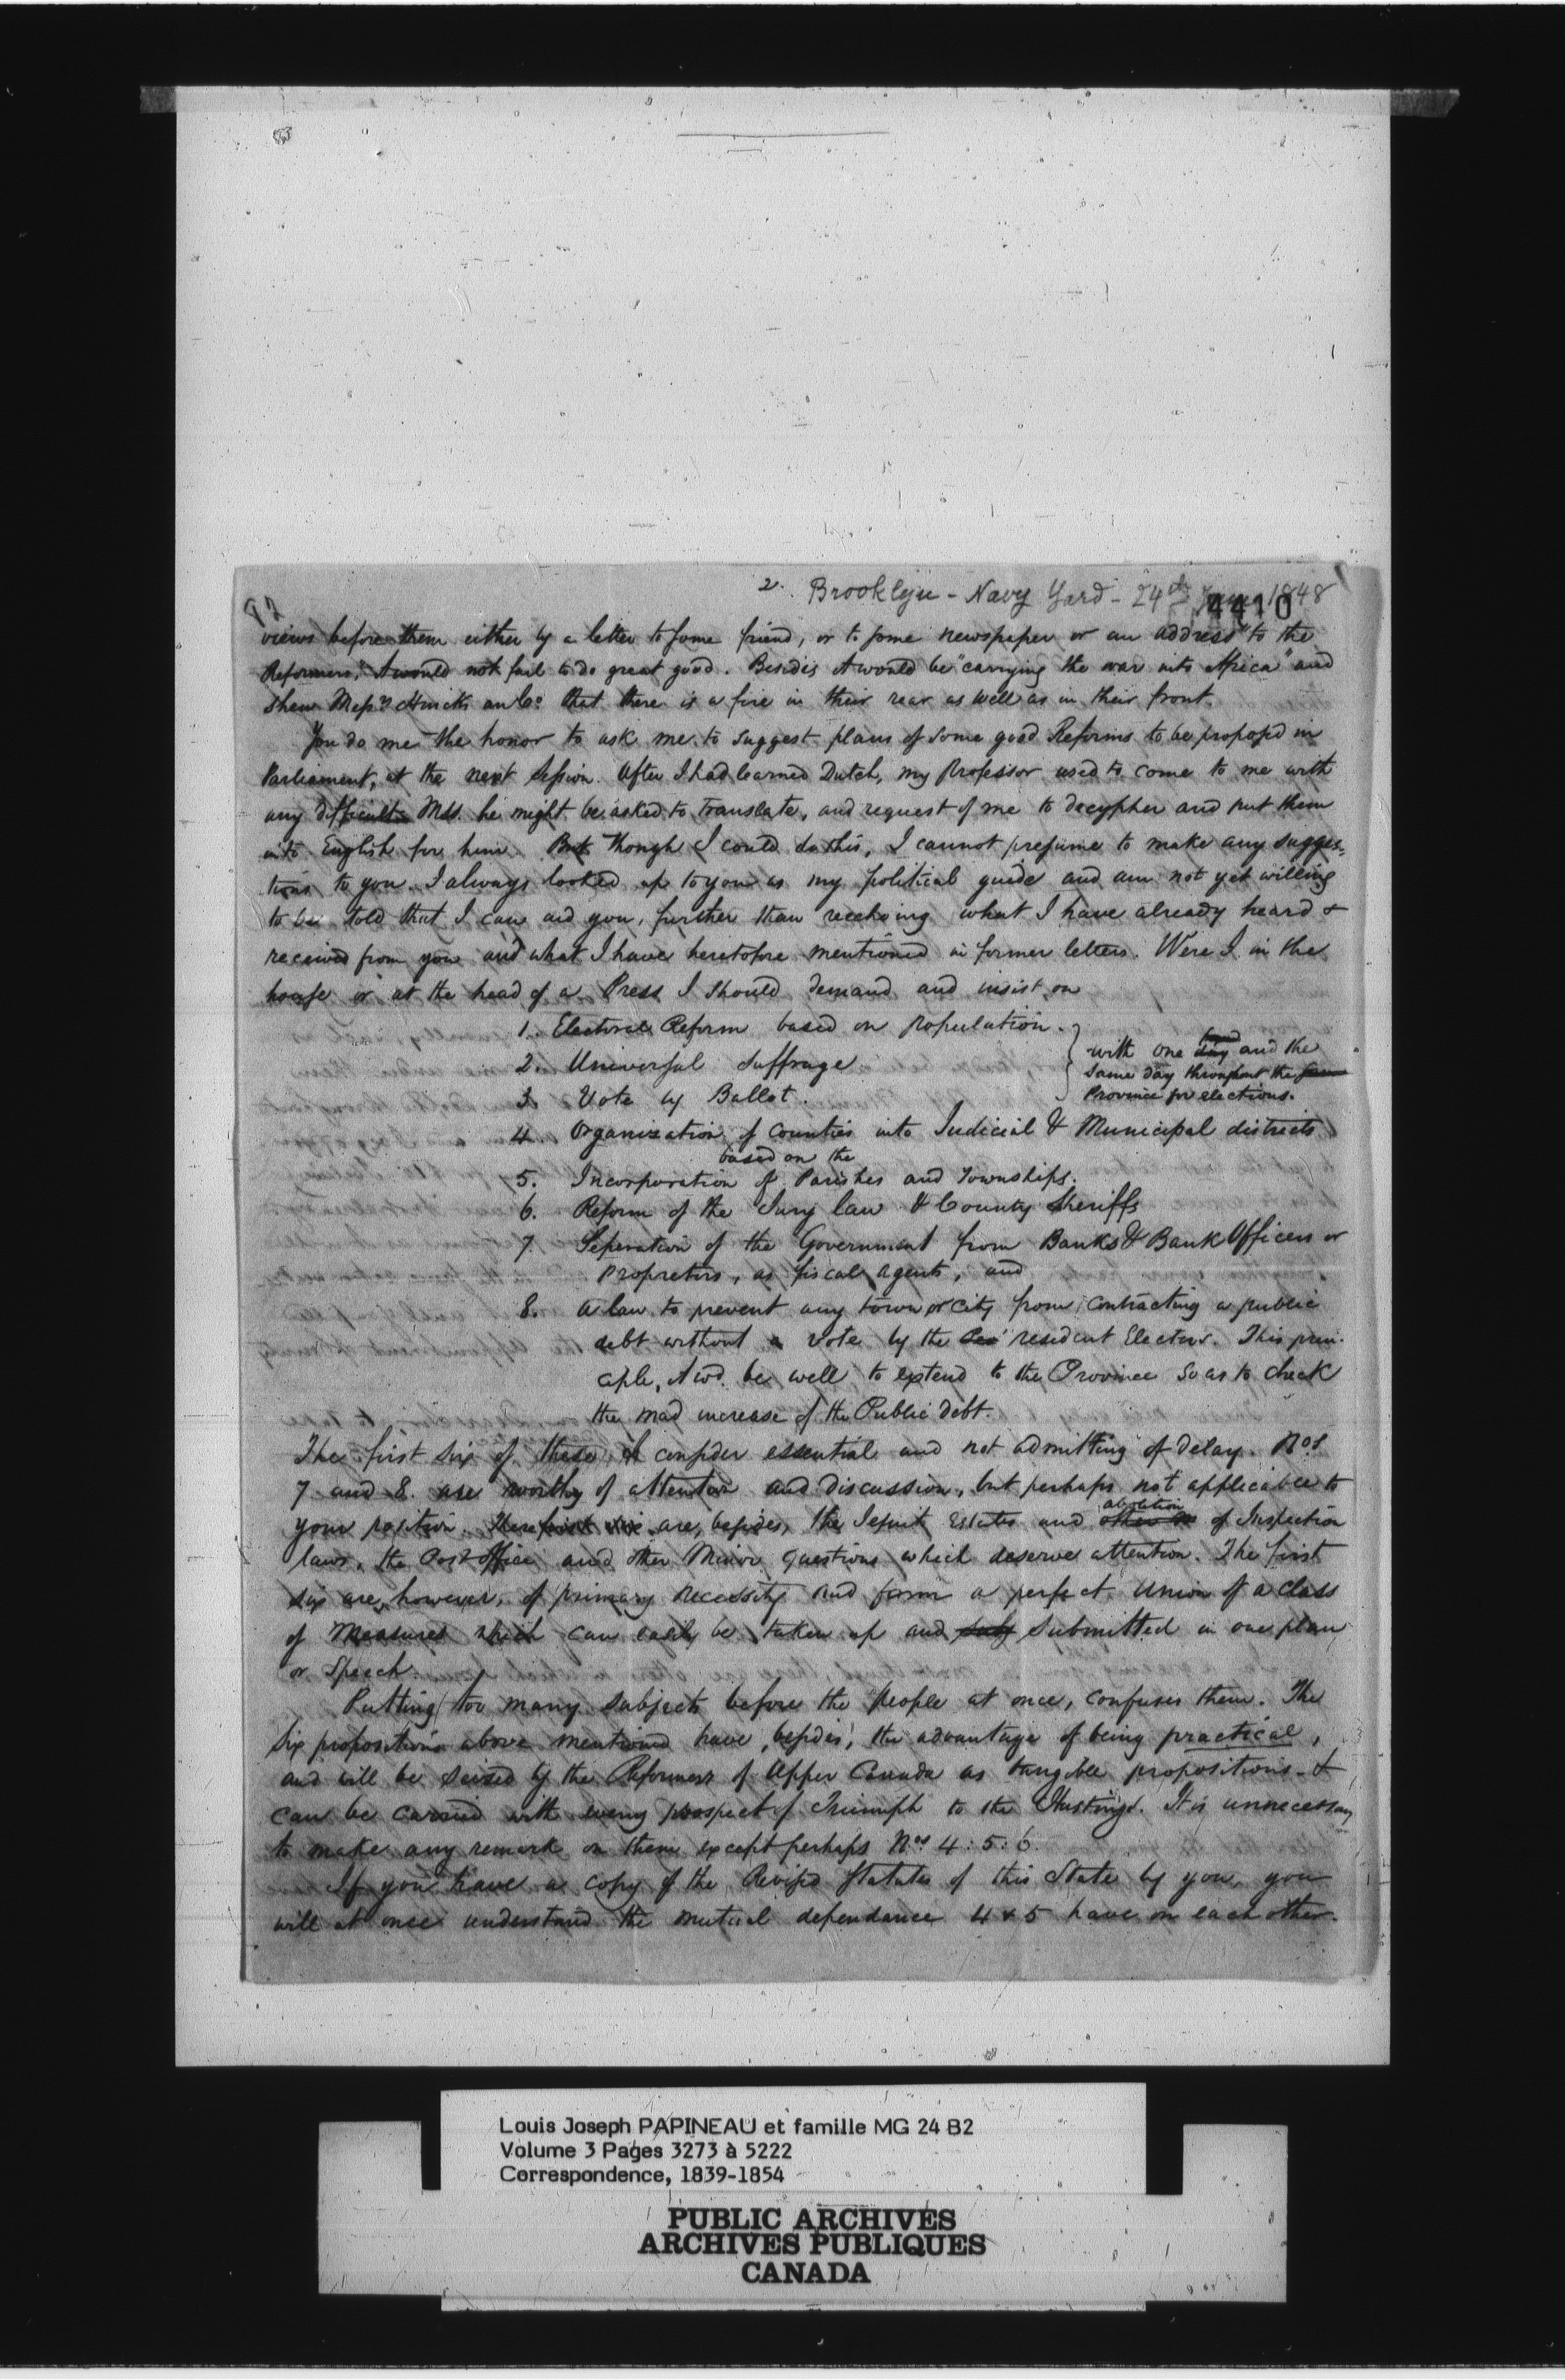 2. Brooklyn - Navy Yard - 24th June 1848
4410
92
views before them either by a letter to some friend, or to some newspaper or an address "to the
Reformers," it would not fail to do great good. Besides it would be "carrying the war into Africa" and
shew Messrs Hincks an Co. that there is a fire in their rear as well as in their front.
You do me the honor to ask me to suggest plans of some good Reforms to be proposed in
Parliament, at the next Session. After I had learned Dutch, my Professor used to come to me with
any difficult MSS. he might be asked to translate, and request of me to decypher and put them
into English for him. But though I could do this, I cannot presume to make any sugges=
tions to you. I always looked up to you as my political guide and am not yet willing
to be told that I can aid you, further than reechoing what I have already heard &
received from you and what I have heretofore mentioned in former letters. Were I in the
house or at the head of a Press I should demand and insist on
1. Electoral Reform based on population.
2. Universal Suffrage
3. Vote by Ballot.
with one day and the
same day throughout the same
Province for elections.
4. Organization of Counties into Judicial & Municipal districts
based on the
5. Incorporation of Parishes and Townships.
6. Reform of the Jury law & County Sheriffs
7. Seperation of the Government from Banks & Bank Officers or
Propretors, as fiscal agents, and
8. A law to prevent any town or city from contracting a public
debt without a vote by the resident Electors. This prin-
ciple, it wd. be well to extend to the Province so as to check
the mad increase of the Public debt.
The first six of these I consider essential and not admitting of delay. Nos
7 and 8. are worthy of attention and discussion, but perhaps not applicable to
your position. There are, besides, the Jesuit Estates and abolition of Inspection
laws, the Post office and other Minor questions which deserve attention. The first
six are, however, of primary necessity and form a perfect Union of a class
of Measures which can easily be taken up and subj submitted in one plan
or Speech.
Putting too many subjects before the people at once, confuses them. The
six propositions above mentioned have, besides, the advantage of being practical,
and will be seized by the Reformers of Upper Canada as tangible propositions &
can be carried with every prospect of Triumph to the Hustings. It is unnecessary
to make any remark on them except perhaps Nos 4: 5: 6.
If you have a copy of the Revised Statutes of this State by you, you
will at once understand the mutual dependance 4 & 5 have on each other.
Louis Joseph PAPINEAU et famille MG 24 B2
Volume 3 Pages 3273 à 5222
Correspondence, 1839-1854
PUBLIC ARCHIVES
ARCHIVES PUBLIQUES
CANADA